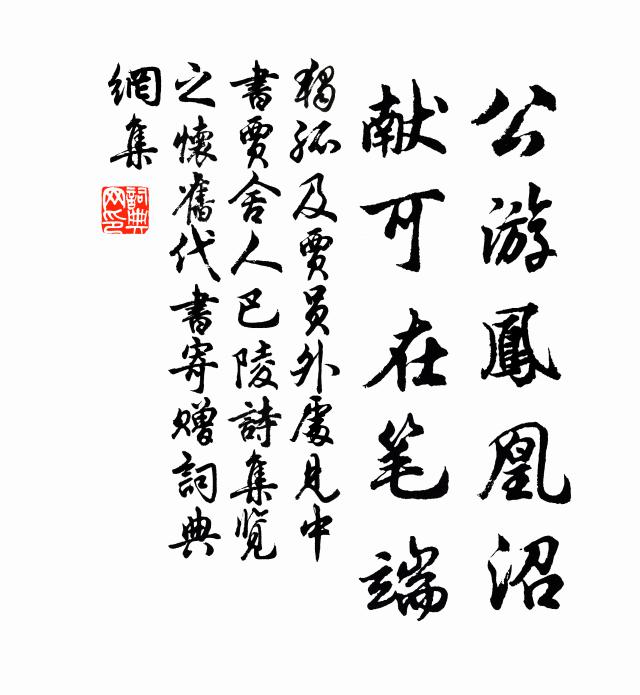 公游鳳凰沼
献可在笔端
獨孤及賈員外處見中
書賈舍人巴陵詩集览
之懷舊代書寄贈詞典
網集
詞典
网印